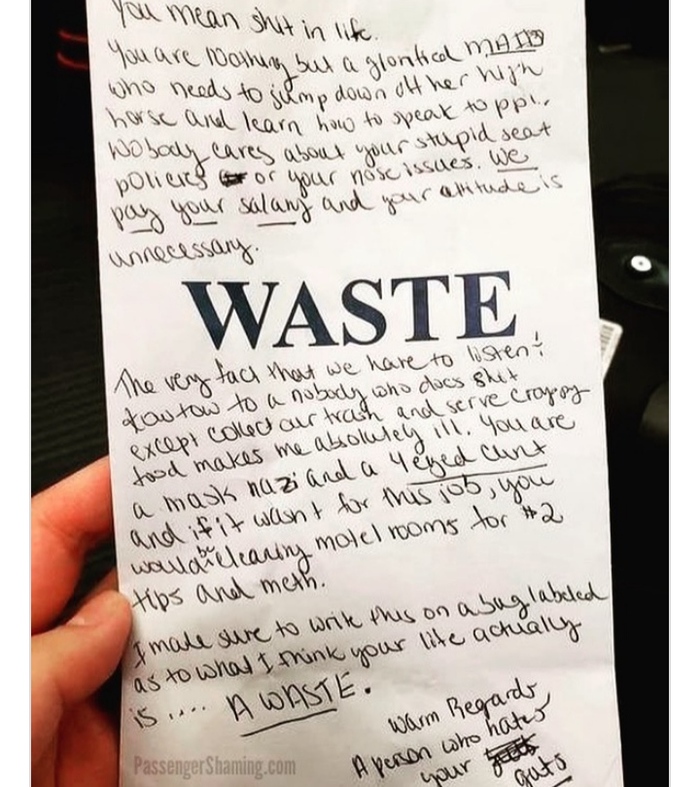 You mean shit in life.
You are Nothing but a glorified MAID
who needs to jump down off her high
horse and learn how to speak to ppl.
Nobody cares about your stupid seat
policies or your nose issues. We
pay your salary and your attitude is
unnecessary.
WASTE
The very fact that we have to listen &
kowtow to a nobody who does shit
except collect our trash and serve crappy
food makes me absolutely ill. You are
a mask nazi and a 4 eyed cunt
and if it wasnt for this job, you
would be cleaning motel rooms for #2
tips and meth.
I made sure to write this on a bag labeled
as to what I think your life actually
is .... A WASTE.
Warm Regards,
A person who hates
your guts
PassengerShaming.com